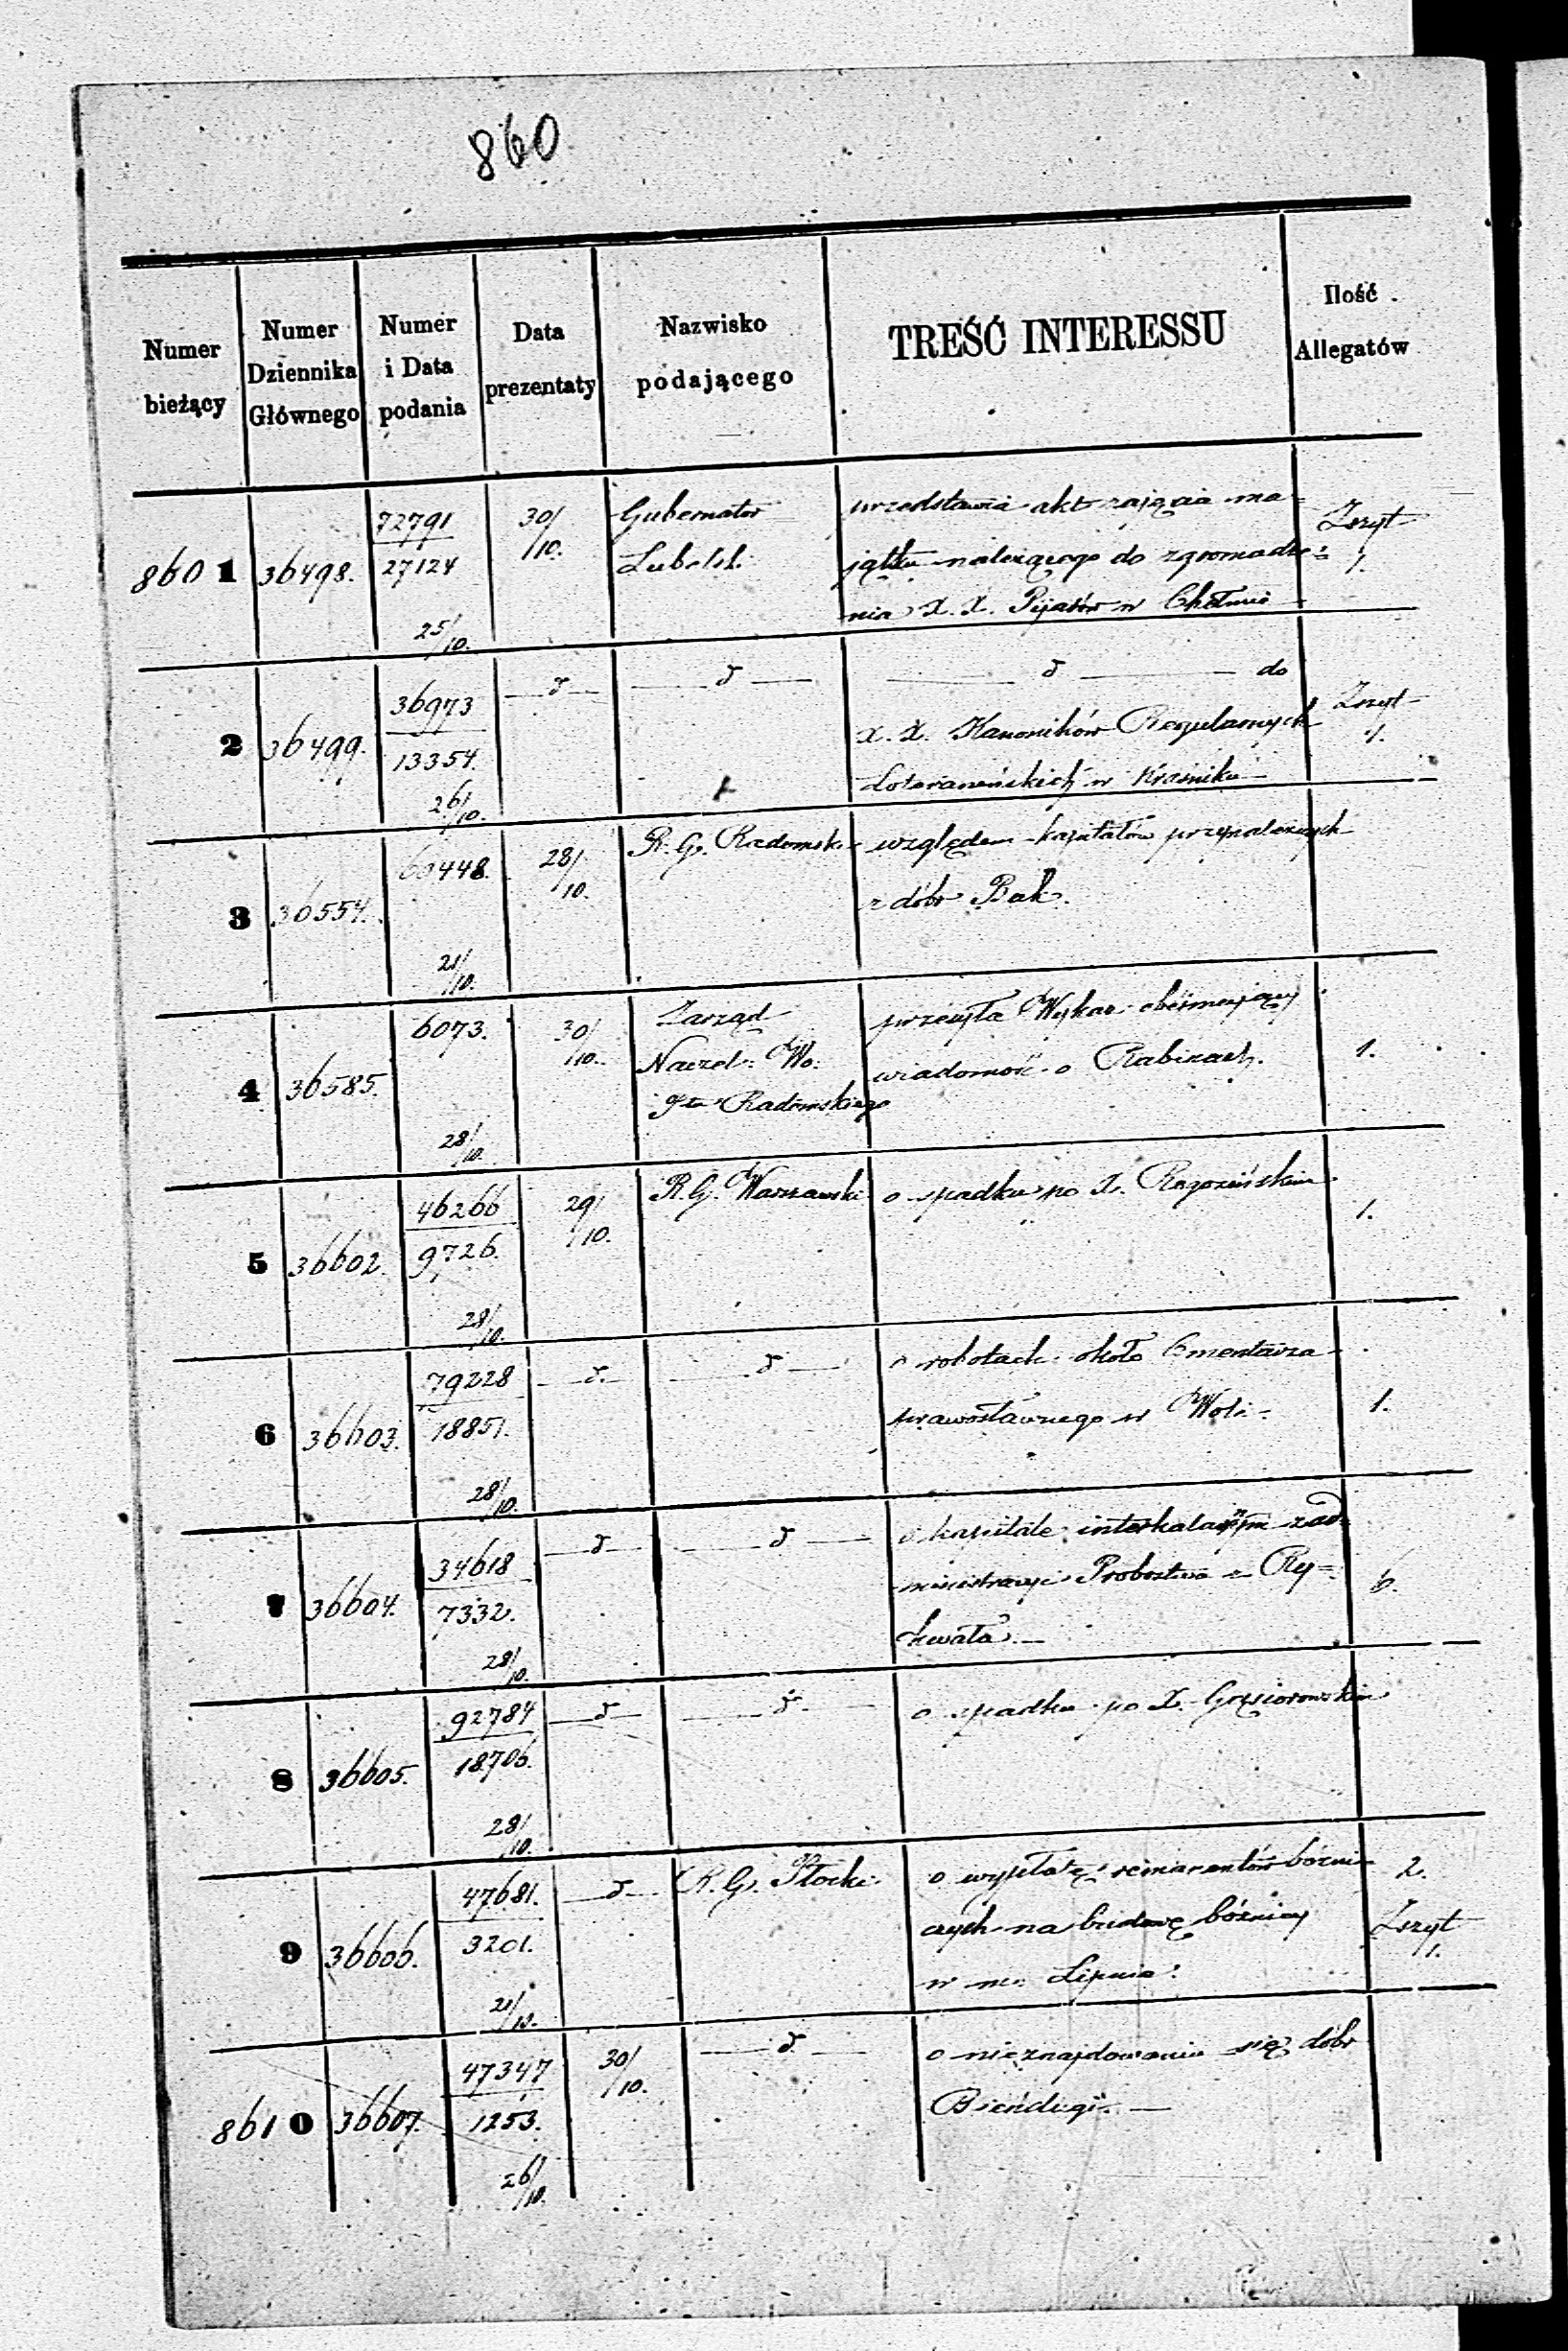 860
Numer bieżący
Numer Dziennika Głównego
Numer i Data podania
Data prezentaty
Nazwisko podającego
TREŚĆ INTERESSU
Ilość Allegatów
8601 36498. 72791 27124 25/10. 30/10. Gubernator Lubelsk. przedstawia akt zajęcia ma=
jątku należącego do zgromadze=
nia X. X. Pijarów w Chełmie
Zszyt 1.
2 36499. 36973 13354. 26/10. d d d do
X. X. Kanoników Regularnych
Lateraneńskich w Kraśniku
Zszyt 1.
3 36554. 60448. 21/10. 28/10. R. G. Radomski względem kapitałów przynależnych
z dóbr Bak.
4 36585. 6073. 28/10. 30/10. Zarząd
Naczel: Wo.
gta Radomskiego
przesyła Wykaz obejmujący
wiadomość o Rabinach.
1.
5 36602. 46266 9726. 28/10. 29/10. R. G. Warszawski o spadku po X.
1.
6 36603. 79228 18851. 28/10. d. d o robotach około Cmentarza
prawosławnego w Woli.
1.
7 36604. 34618 7332. 28/10. d d o kapitale interkalarnym z ad=
ministracyi Probostwa Ry=
chwała.
6.
8 36605. 92784 18706. 28/10. d d. o spadku po X. Gąsiorowskim
9 36606. 47681. 3201. 21/10. d R. G. Płocki. o wypłatę remanentów bożni=
czych na budowę bóżnicy
w m. Lipnie.
2.
Zszyt 1.
8610 36607. 47347 1253. 26/10. 30/10. d. o nieznajdowaniu się dóbr